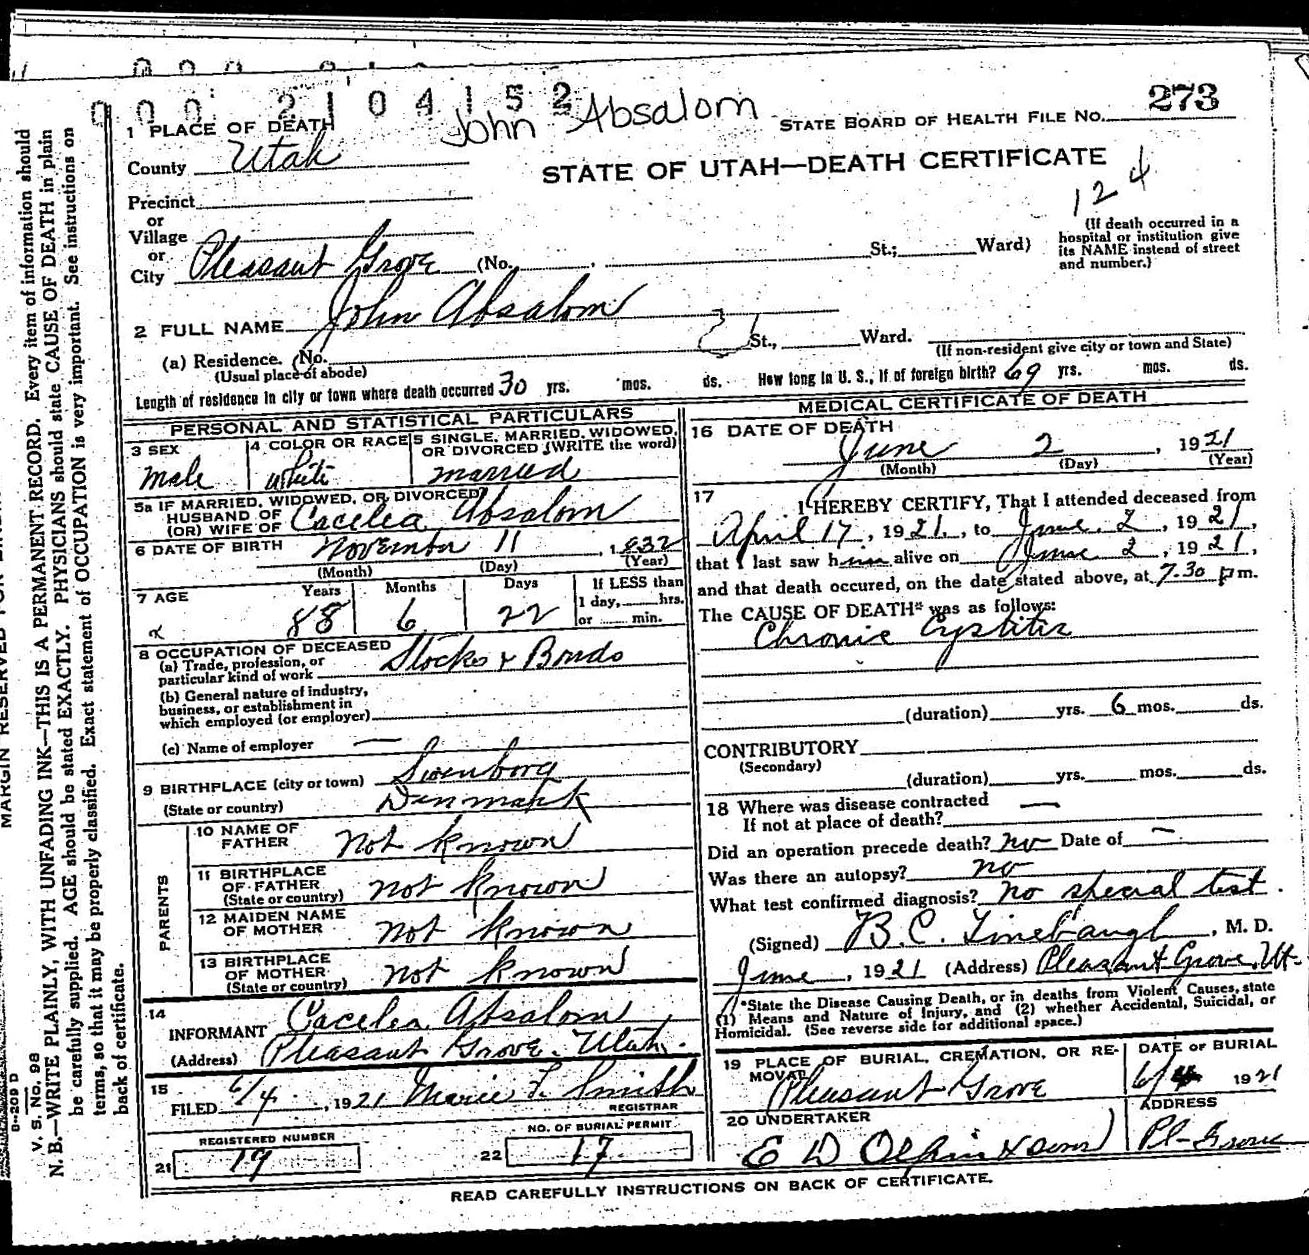 000 2104152
John Absalom
STATE BOARD OF HEALTH FILE No. 273
1 PLACE OF DEATH
County Utah
STATE OF UTAH—DEATH CERTIFICATE
124
Precinct
or
Village
or
City Pleasant Grove (No. , St.; Ward)
(If death occurred in a
hospital or institution give
its NAME instead of street
and number.)
2 FULL NAME John Absalom
(a) Residence. (No. St., Ward.
(Usual place of abode)
(If non-resident give city or town and State)
Length of residence in city or town where death occurred 30 yrs. mos. ds. How long in U. S., if of foreign birth? 69 yrs. mos. ds.
PERSONAL AND STATISTICAL PARTICULARS
3 SEX
male
4 COLOR OR RACE
white
5 SINGLE, MARRIED, WIDOWED,
OR DIVORCED (WRITE the word)
married
5a IF MARRIED, WIDOWED, OR DIVORCED
HUSBAND OF
(OR) WIFE OF Cacelea Absalom
6 DATE OF BIRTH November 11, 1832
(Month) (Day) (Year)
7 AGE
Years Months Days
88 6 22
If LESS than
1 day, hrs.
or min.
8 OCCUPATION OF DECEASED
(a) Trade, profession, or
particular kind of work Stocks & Bonds
(b) General nature of industry,
business, or establishment in
which employed (or employer)
(c) Name of employer —
9 BIRTHPLACE (city or town) Svenborg
(State or country) Denmark
PARENTS
10 NAME OF
FATHER not known
11 BIRTHPLACE
OF FATHER
(State or country) not known
12 MAIDEN NAME
OF MOTHER not known
13 BIRTHPLACE
OF MOTHER
(State or country) not known
14
INFORMANT Cacelea Absalom
(Address) Pleasant Grove. Utah.
15
FILED 6/4, 1921 Marie F. Smith
REGISTRAR
REGISTERED NUMBER
21 19
NO. OF BURIAL PERMIT
22 17
MEDICAL CERTIFICATE OF DEATH
16 DATE OF DEATH
June 2, 1921
(Month) (Day) (Year)
17
I HEREBY CERTIFY, That I attended deceased from
April 17, 1921., to June. 2, 1921,
that I last saw him alive on June 2, 1921,
and that death occured, on the date stated above, at 7.30 p m.
The CAUSE OF DEATH* was as follows:
Chronic Cystitis
(duration) yrs. 6 mos. ds.
CONTRIBUTORY
(Secondary)
(duration) yrs. mos. ds.
18 Where was disease contracted
If not at place of death? —
Did an operation precede death? no Date of —
Was there an autopsy? no
What test confirmed diagnosis? no special test.
(Signed) B. C. Linebaugh, M. D.
June, 1921 (Address) Pleasant Grove, Ut-
*State the Disease Causing Death, or in deaths from Violent Causes, state
(1) Means and Nature of Injury, and (2) whether Accidental, Suicidal, or
Homicidal. (See reverse side for additional space.)
19 PLACE OF BURIAL, CREMATION, OR RE-
MOVAL
Pleasant Grove
DATE OF BURIAL
6/4 1921
20 UNDERTAKER
E D Olpin & sons
ADDRESS
Pl-Grove
READ CAREFULLY INSTRUCTIONS ON BACK OF CERTIFICATE.
MARGIN RESERVED FOR
V. S. No. 98
B-209 D
N. B.—WRITE PLAINLY, WITH UNFADING INK—THIS IS A PERMANENT RECORD. Every item of information should
be carefully supplied. AGE should be stated EXACTLY. PHYSICIANS should state CAUSE OF DEATH in plain
terms, so that it may be properly classified. Exact statement of OCCUPATION is very important. See instructions on
back of certificate.